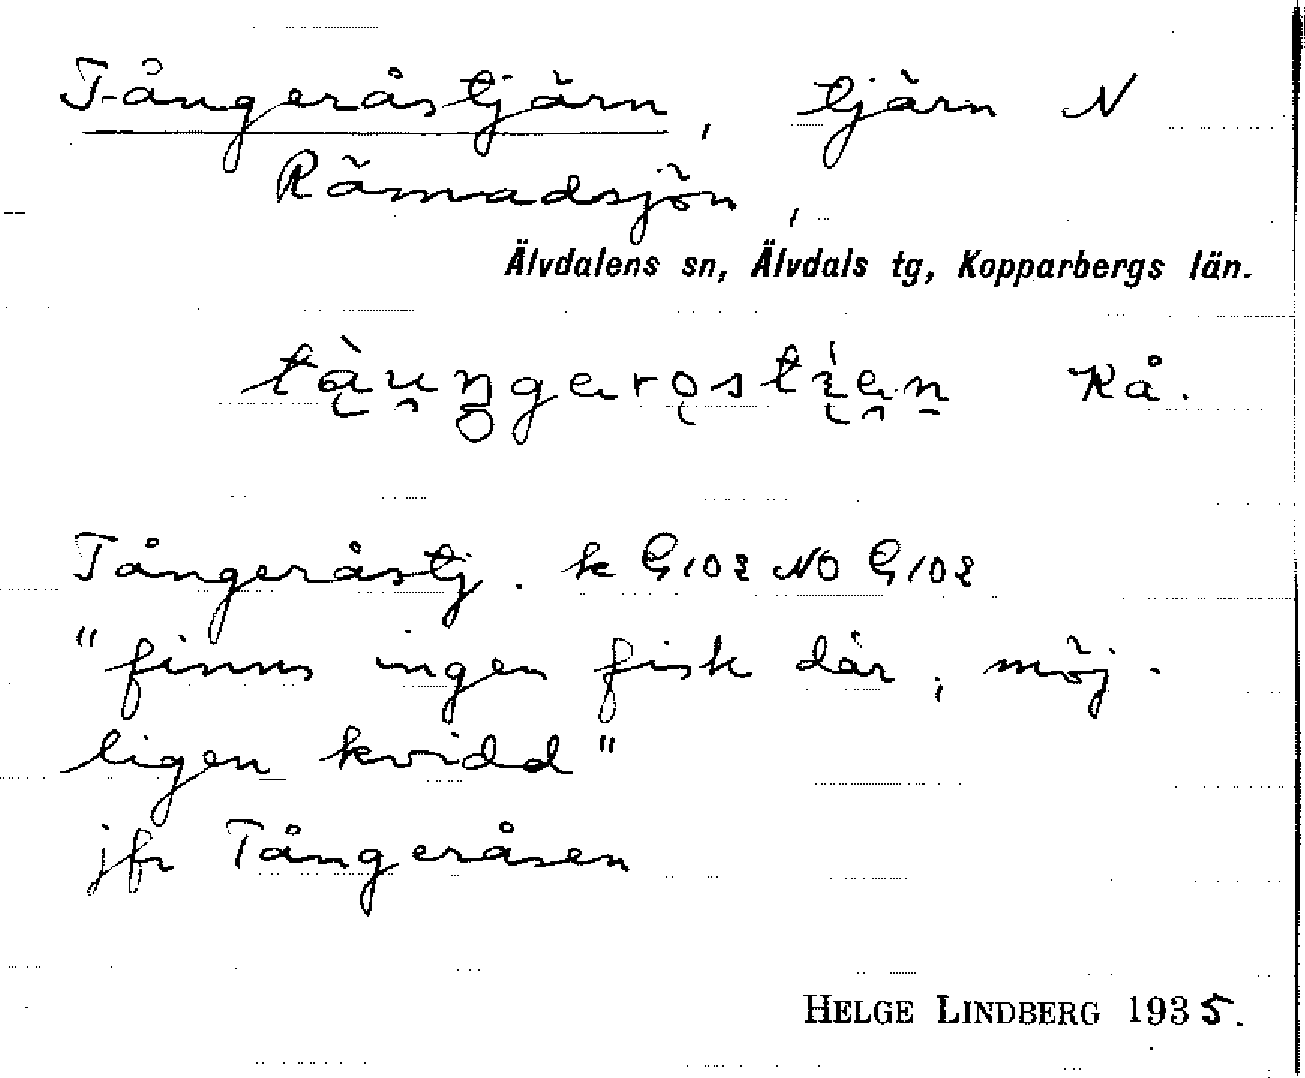 Tångeråstjärn, tjärn N
Rämadsjön,
Älvdalens sn, Älvdals tg, Kopparbergs län.
Kå.
Tångeråstj. k G102 NO G102
"finns ingen fisk där, möj-
ligen kvidd"
jfr Tångeråsen
HELGE LINDBERG 1935.